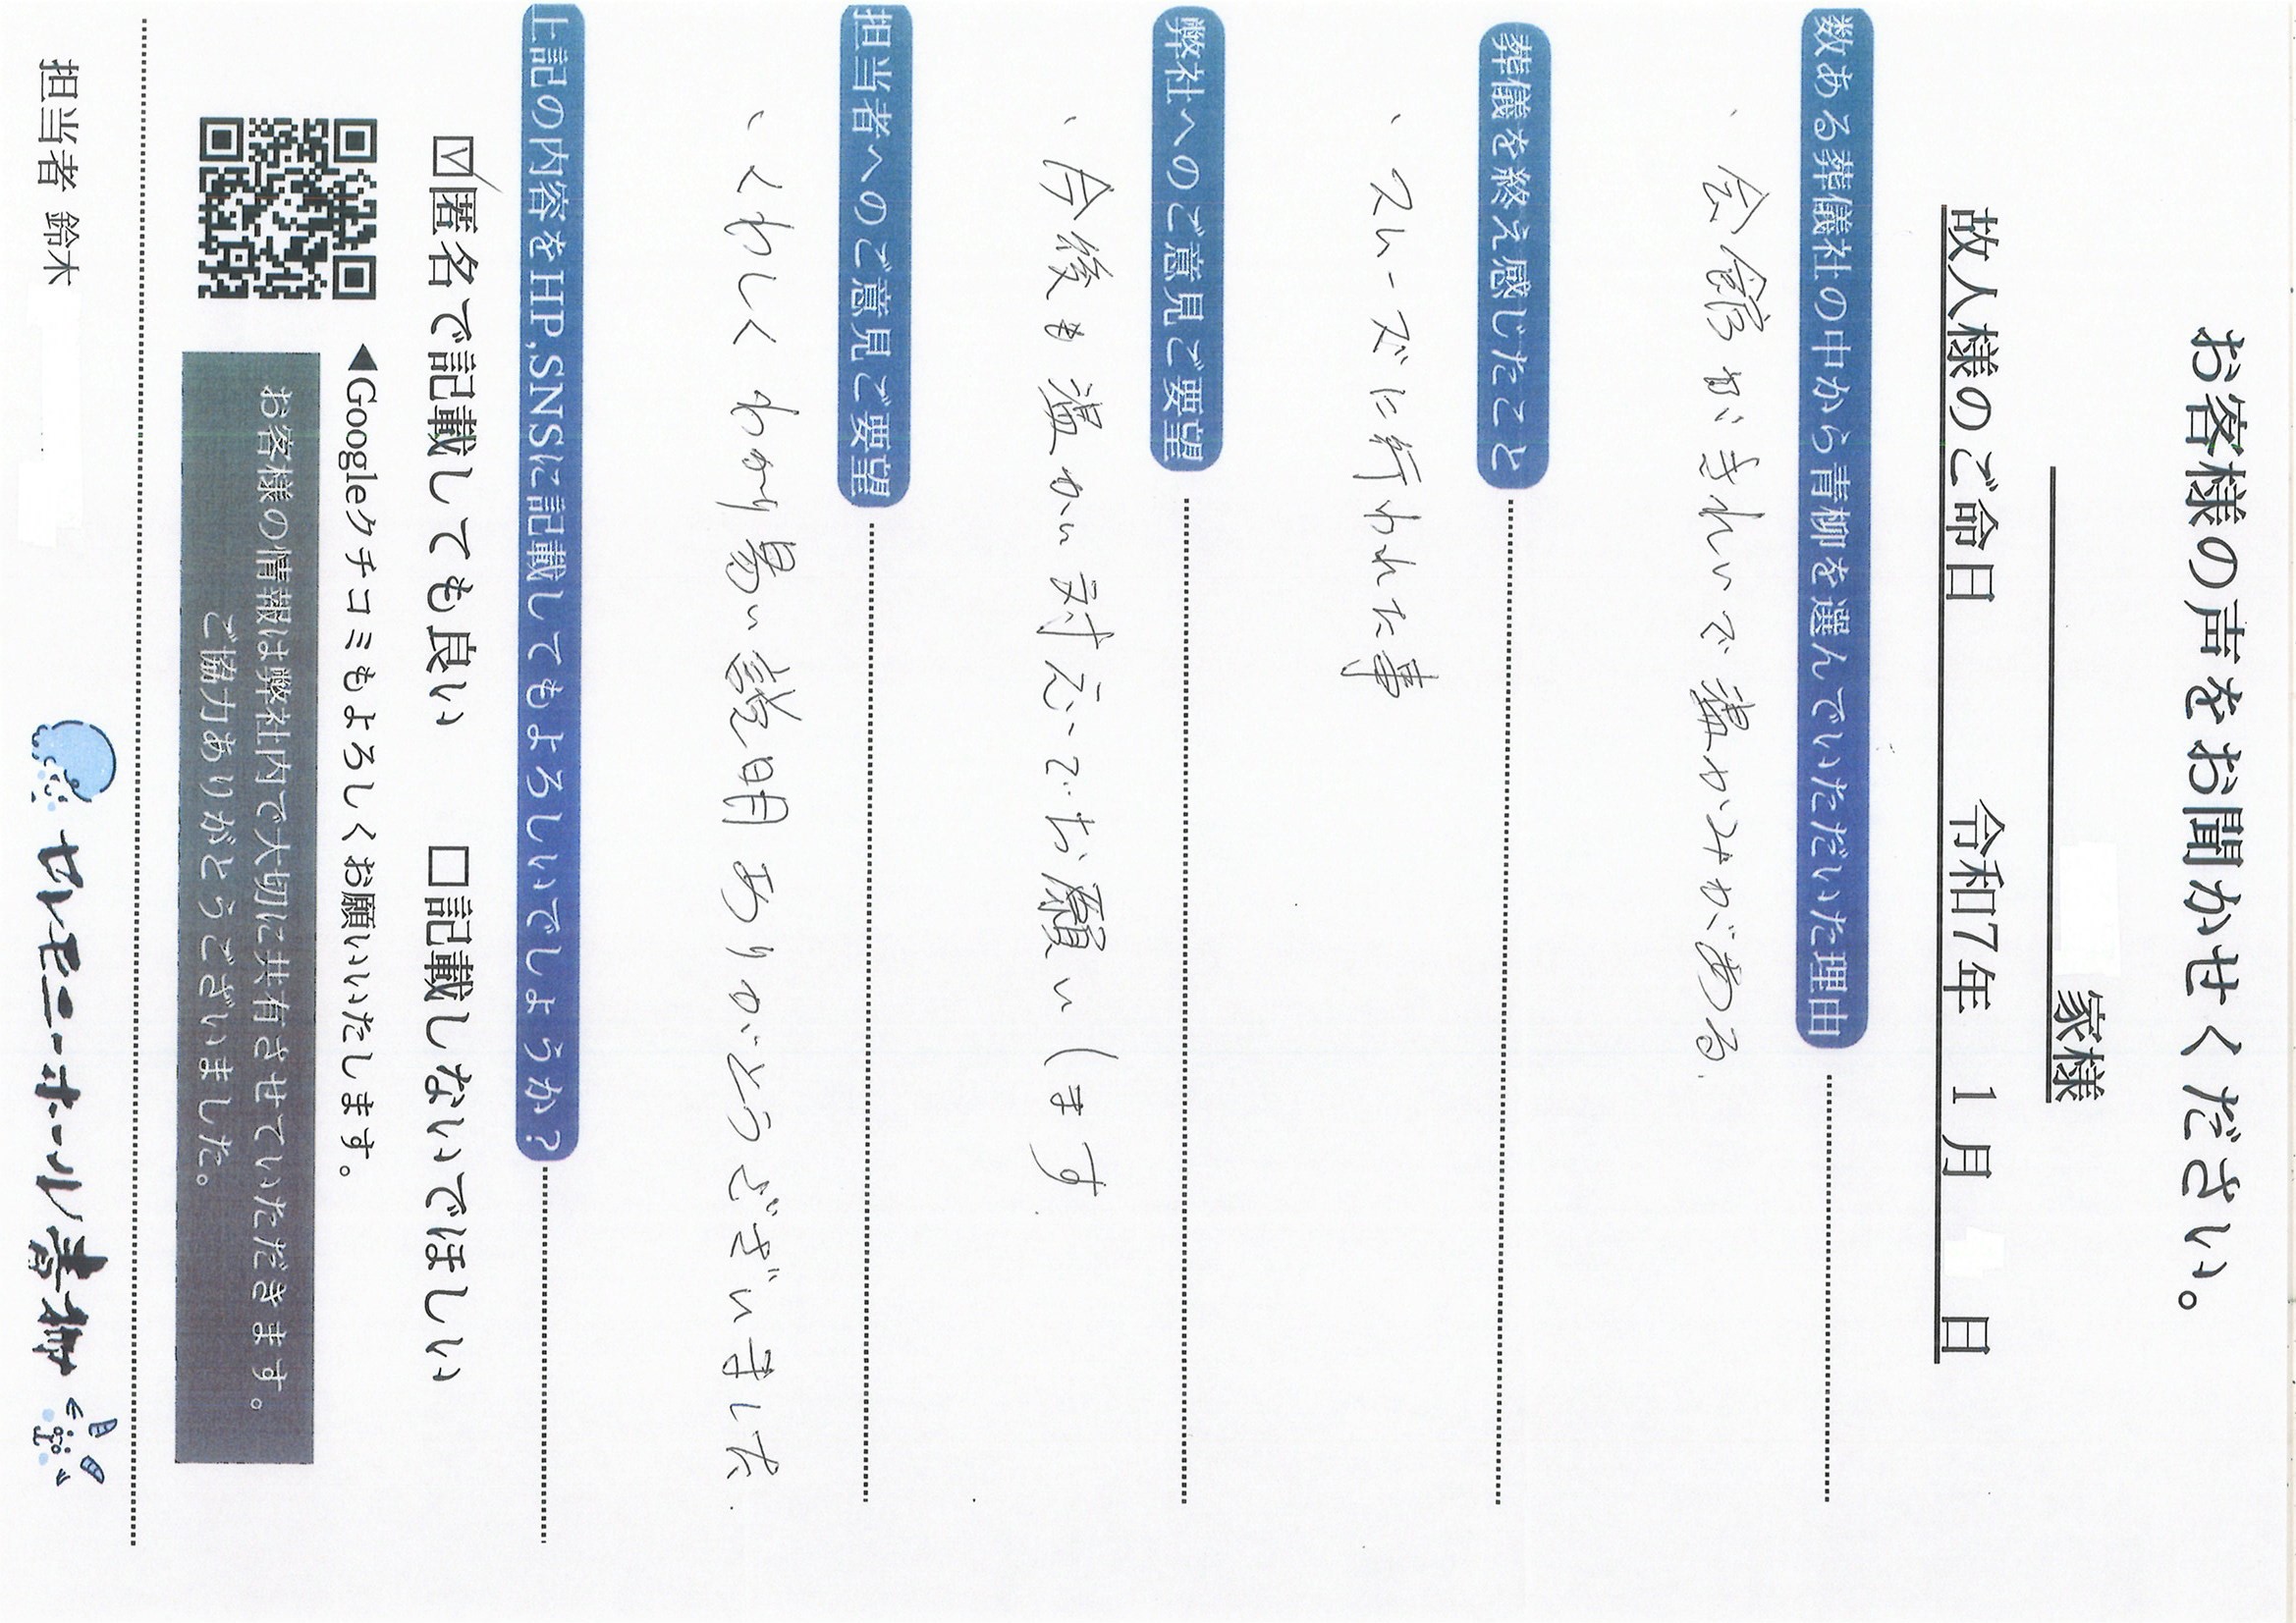 お客様の声をお聞かせください。
家様
故人様のご命日 令和7年 1月 日
数ある葬儀社の中から青柳を選んでいただいた理由
、会館がきれいで温かみがある.
葬儀を終え感じたこと
、スムーズに行われた事
弊社へのご意見ご要望
、今後も温かい対応でお願いします.
担当者へのご意見ご要望
、くわしくわかり易い説明ありがとうございました.
上記の内容をHP,SNSに記載してもよろしいでしょうか？
☑匿名で記載しても良い □記載しないでほしい
◀Googleクチコミもよろしくお願いいたします。
お客様の情報は弊社内で大切に共有させていただきます。
ご協力ありがとうございました。
担当者 鈴木
セレモニーホール青柳